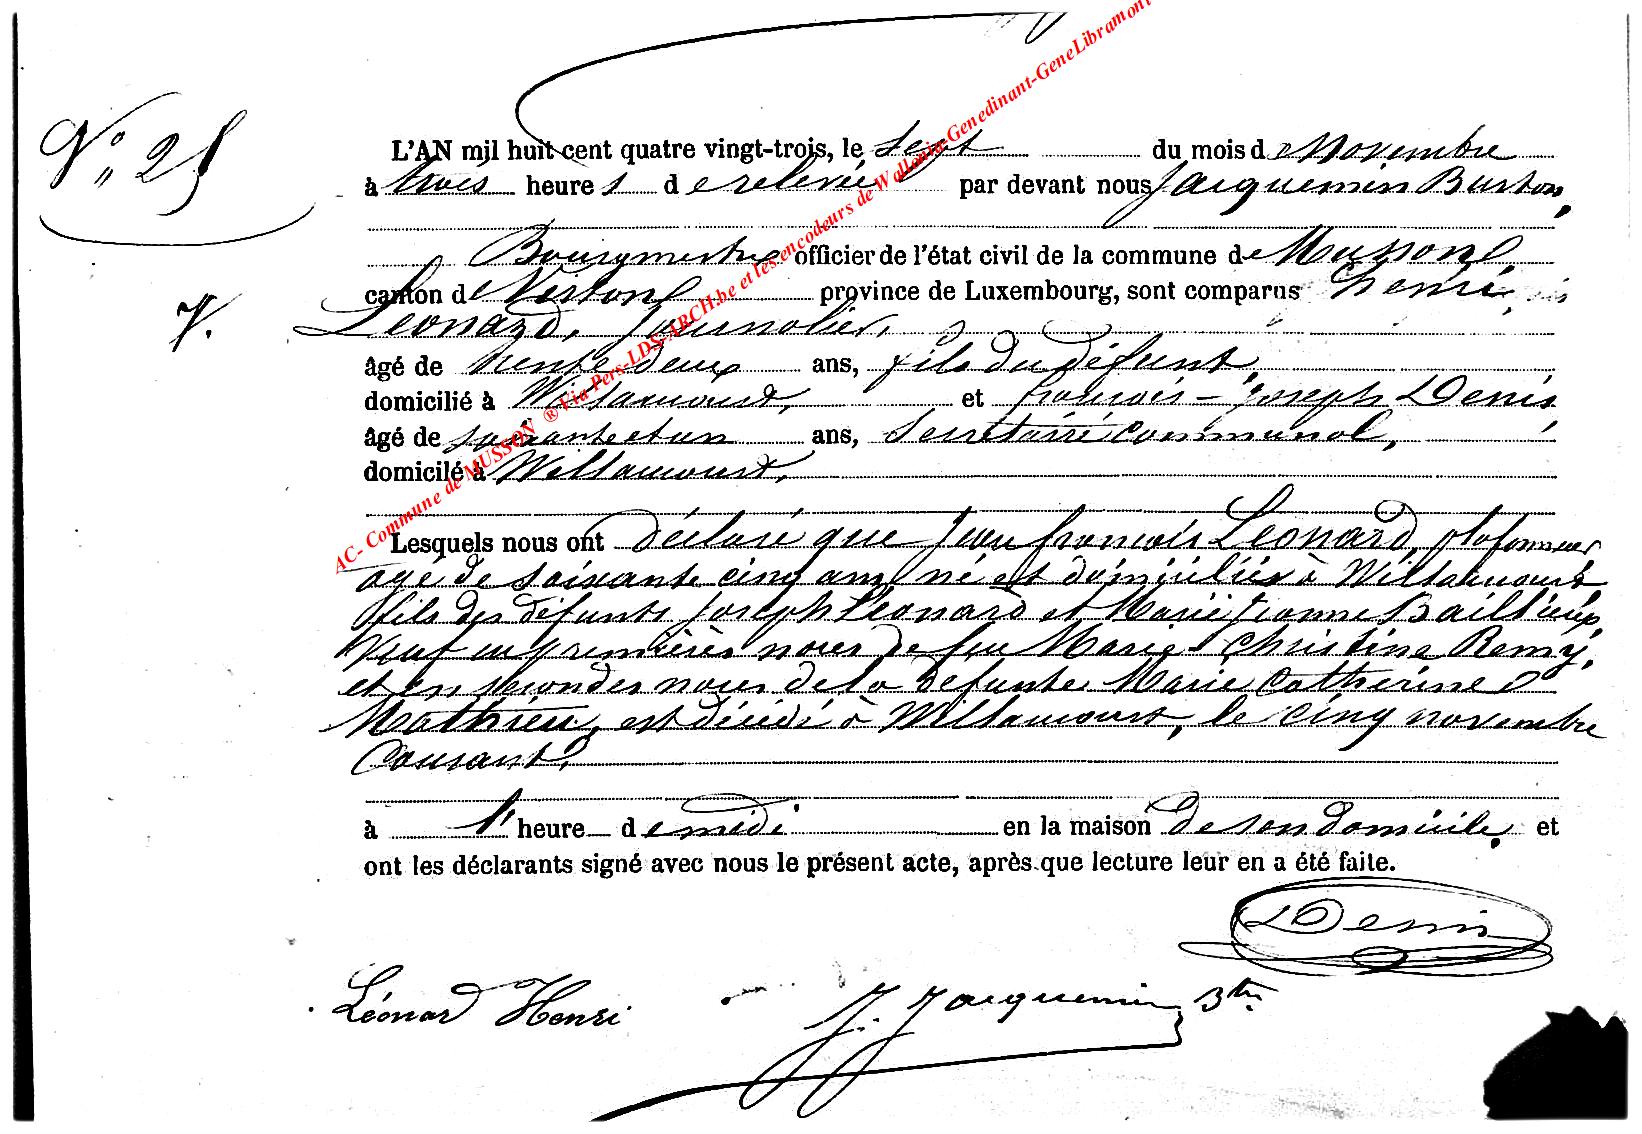 N° 25
L'AN mil huit cent quatre vingt-trois, le sept du mois de Novembre
à trois heures de relevée par devant nous Jacquemin Burton,
Bourgmestre officier de l'état civil de la commune de Musson,
canton de Virton, province de Luxembourg, sont comparus Henri
V. Léonard, Journalier,
âgé de trente deux ans, fils du défunt,
domicilié à Willancourt, et françois-Joseph Denis
âgé de soixante et un ans, Secrétaire communal,
domicilé à Willancourt,
Lesquels nous ont déclaré que Jean françois Léonard, plafonneur
agé de soixante cinq ans, né et domicilié à Willancourt,
fils des défunts Joseph Léonard et Marie Jeanne Baillieux,
Veuf en premières noces de feu Marie-Christine Remy,
et en secondes noces de la défunte Marie Catherine
Mathieu, est décédé à Willancourt, le cinq novembre
Courant,
à 1 heure de midi en la maison de son domicile, et
ont les déclarants signé avec nous le présent acte, après que lecture leur en a été faite.
Denis
Léonard Henri J. Jacquemin Btn
AC- Commune de MUSSON ® Via Pers-LDS-ARCH.be et les encodeurs de Wallonia-Genedinant-GeneLibramont